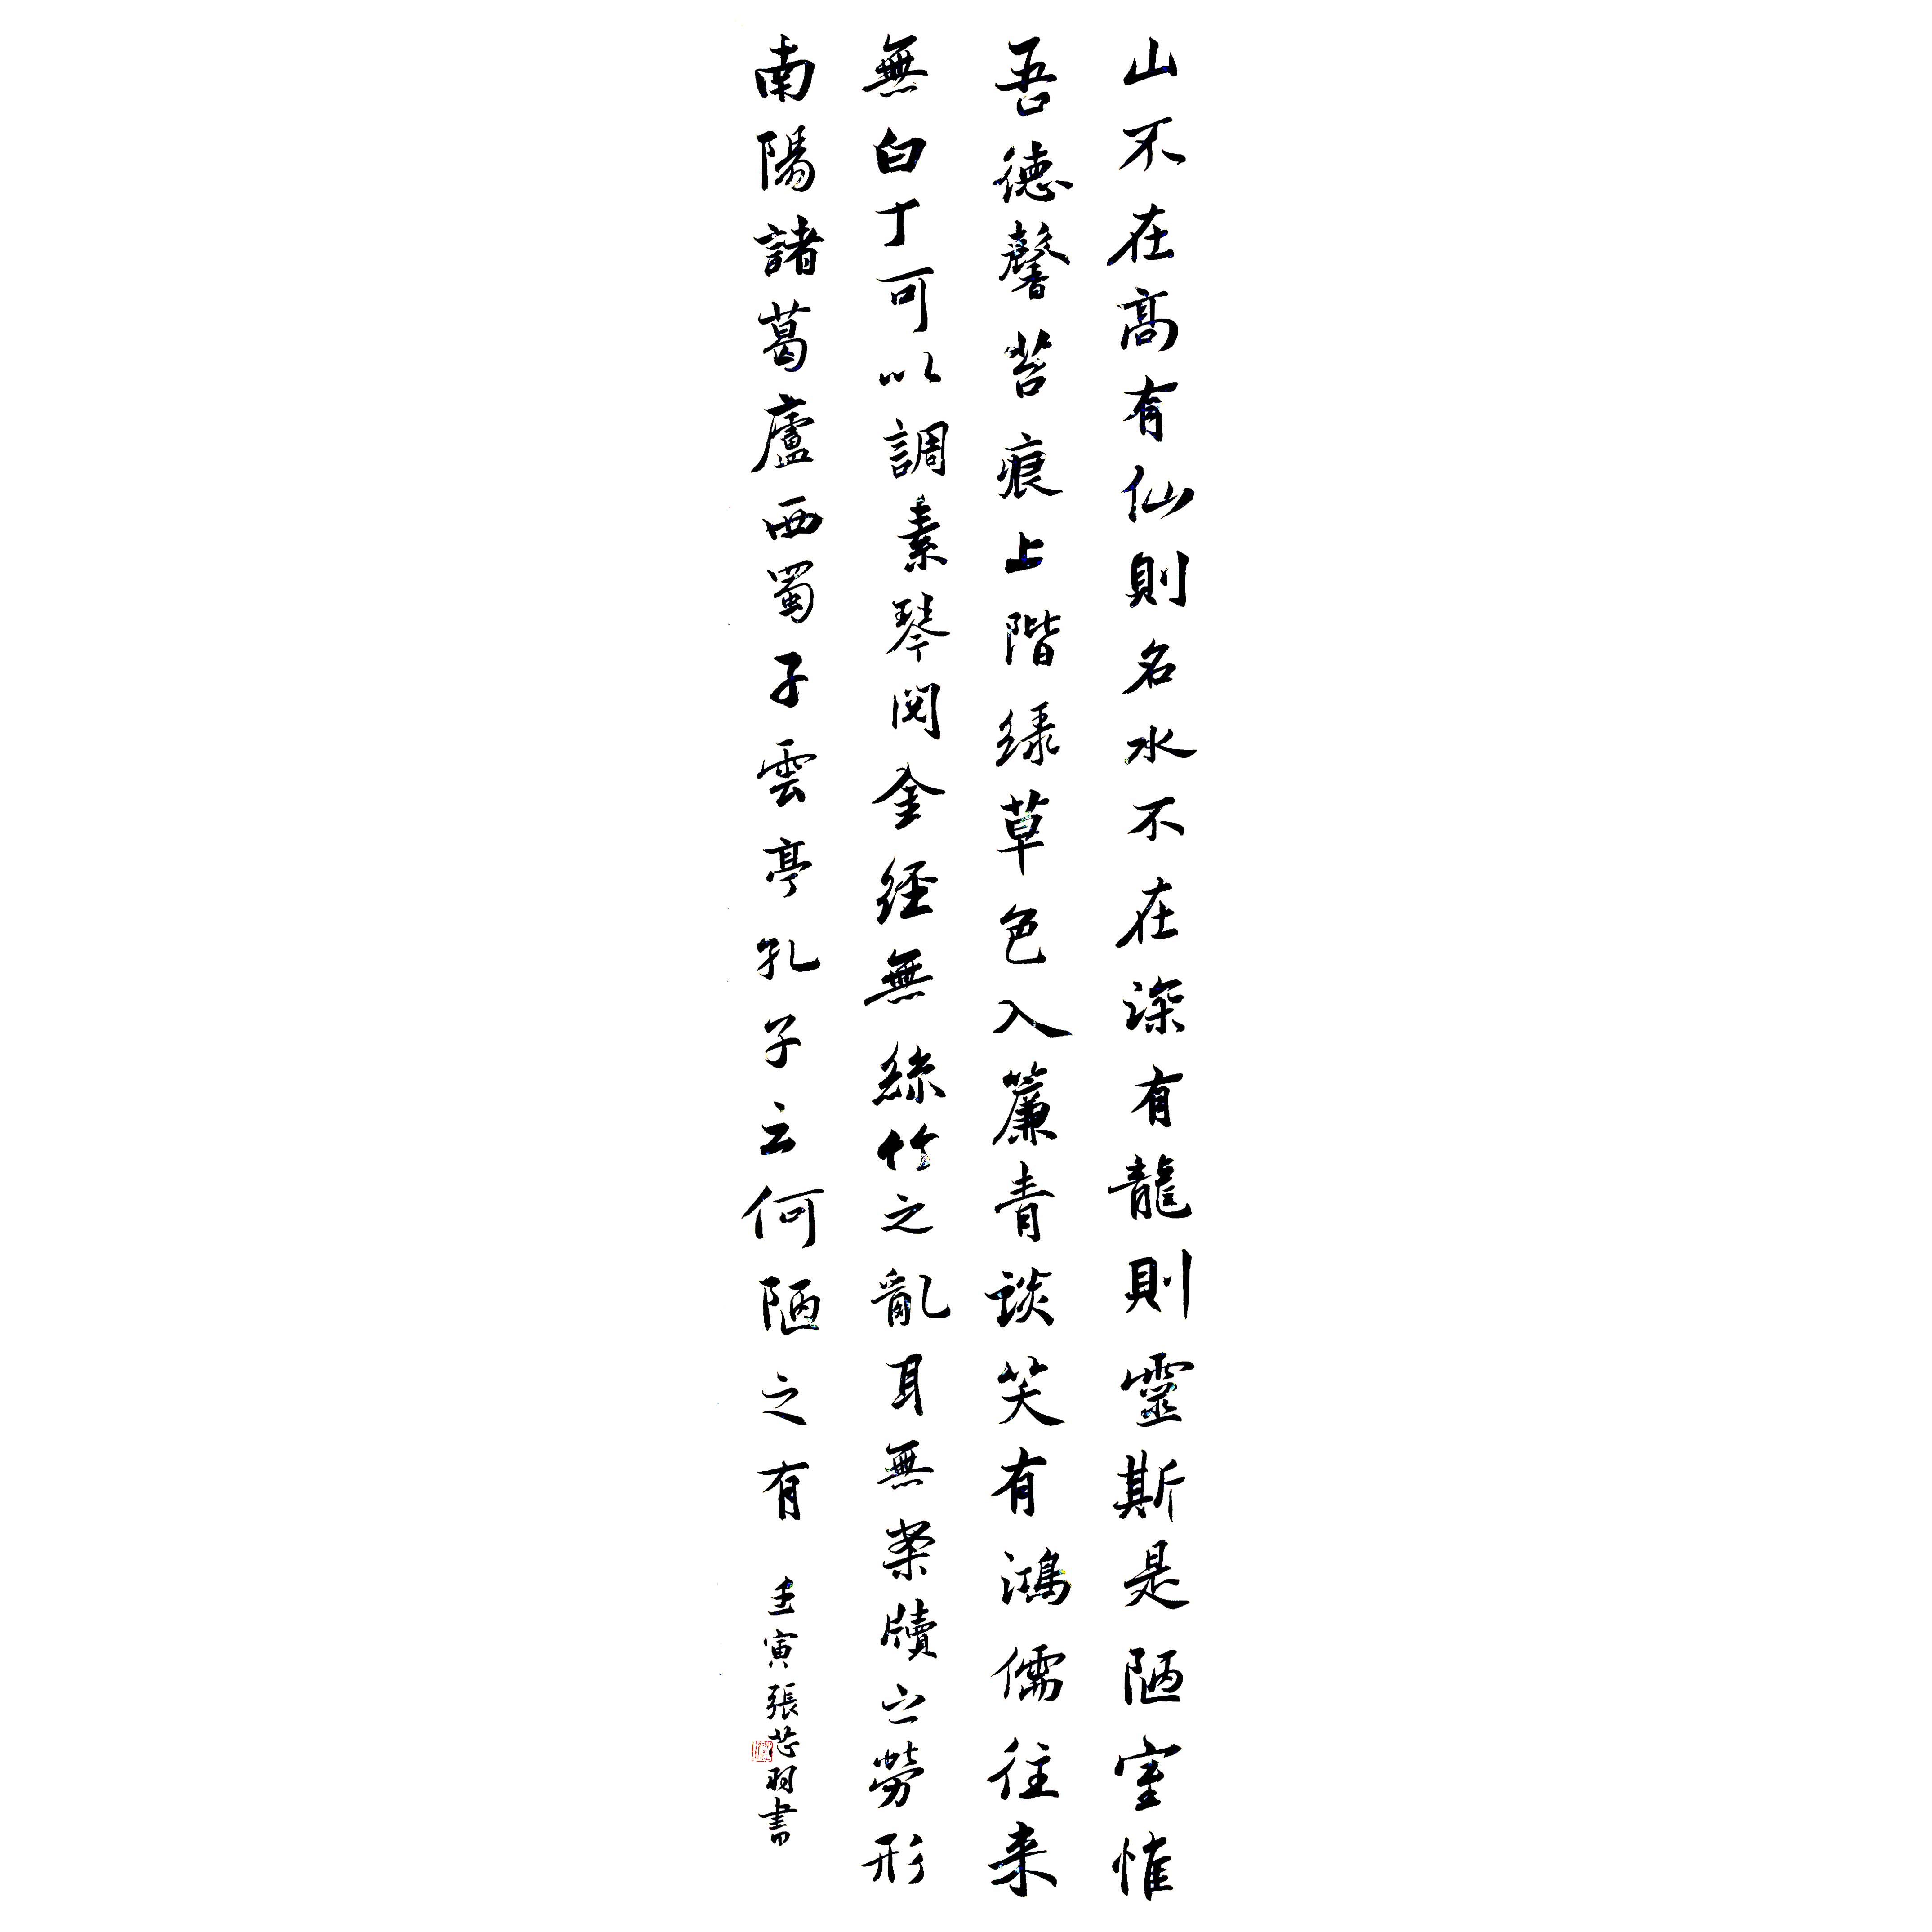 山不在高有仙則名水不在深有龍則靈斯是陋室惟
吾德馨苔痕上階緑草色入簾青談笑有鴻儒往来
無白丁可以調素琴閱金經無絲竹之亂耳無案牘之勞形
南陽諸葛廬西蜀子雲亭孔子云何陋之有
壬寅張芯羽書